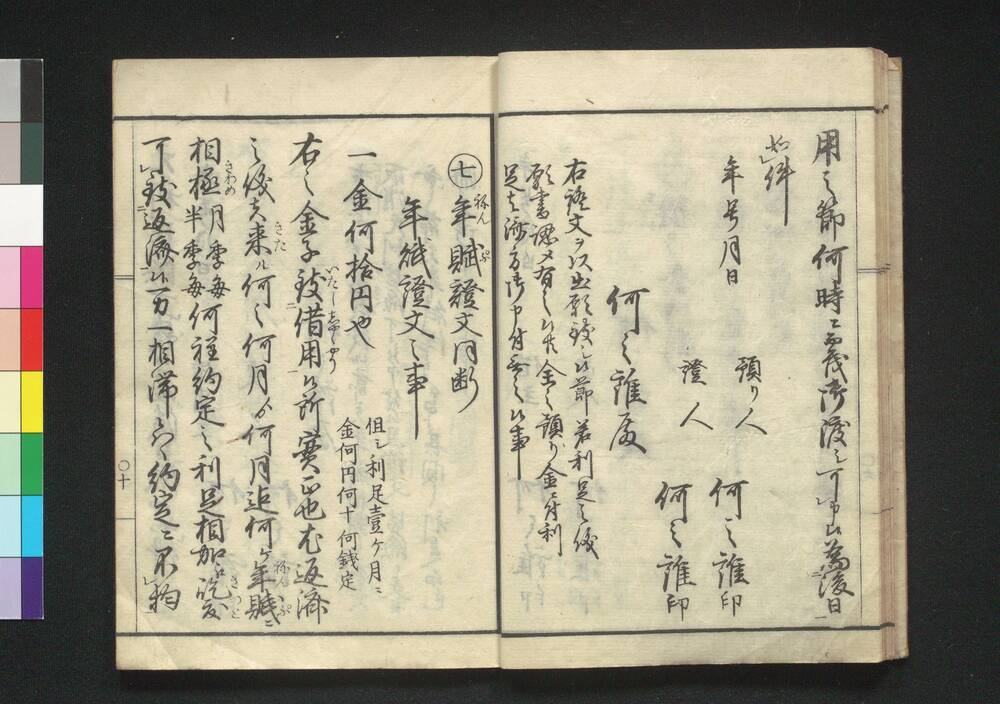 用之節何時ニ而茂御渡シ可申候為後日
如件
年号月日
預り人 何之誰印
證人 何之誰印
何之誰殿
右證文ヲ以出願致シ候節若利足之儀
願書認メ有之候共金之預り金ニ付利
足之御方御申付無之候事
㊆年賦證文同断
年賦證文之事
一金何拾円也 但シ利足壹ヶ月ニ
金何円何十何銭定
右之金子致借用候所実正也尤返済
之儀者来ル何之何月ゟ何月迄何ヶ年賦ニ
相極月季毎半季毎何程約定之利足相加へ急度
可致返済候万一相滞候ハヽ約定ニ不拘
〇十